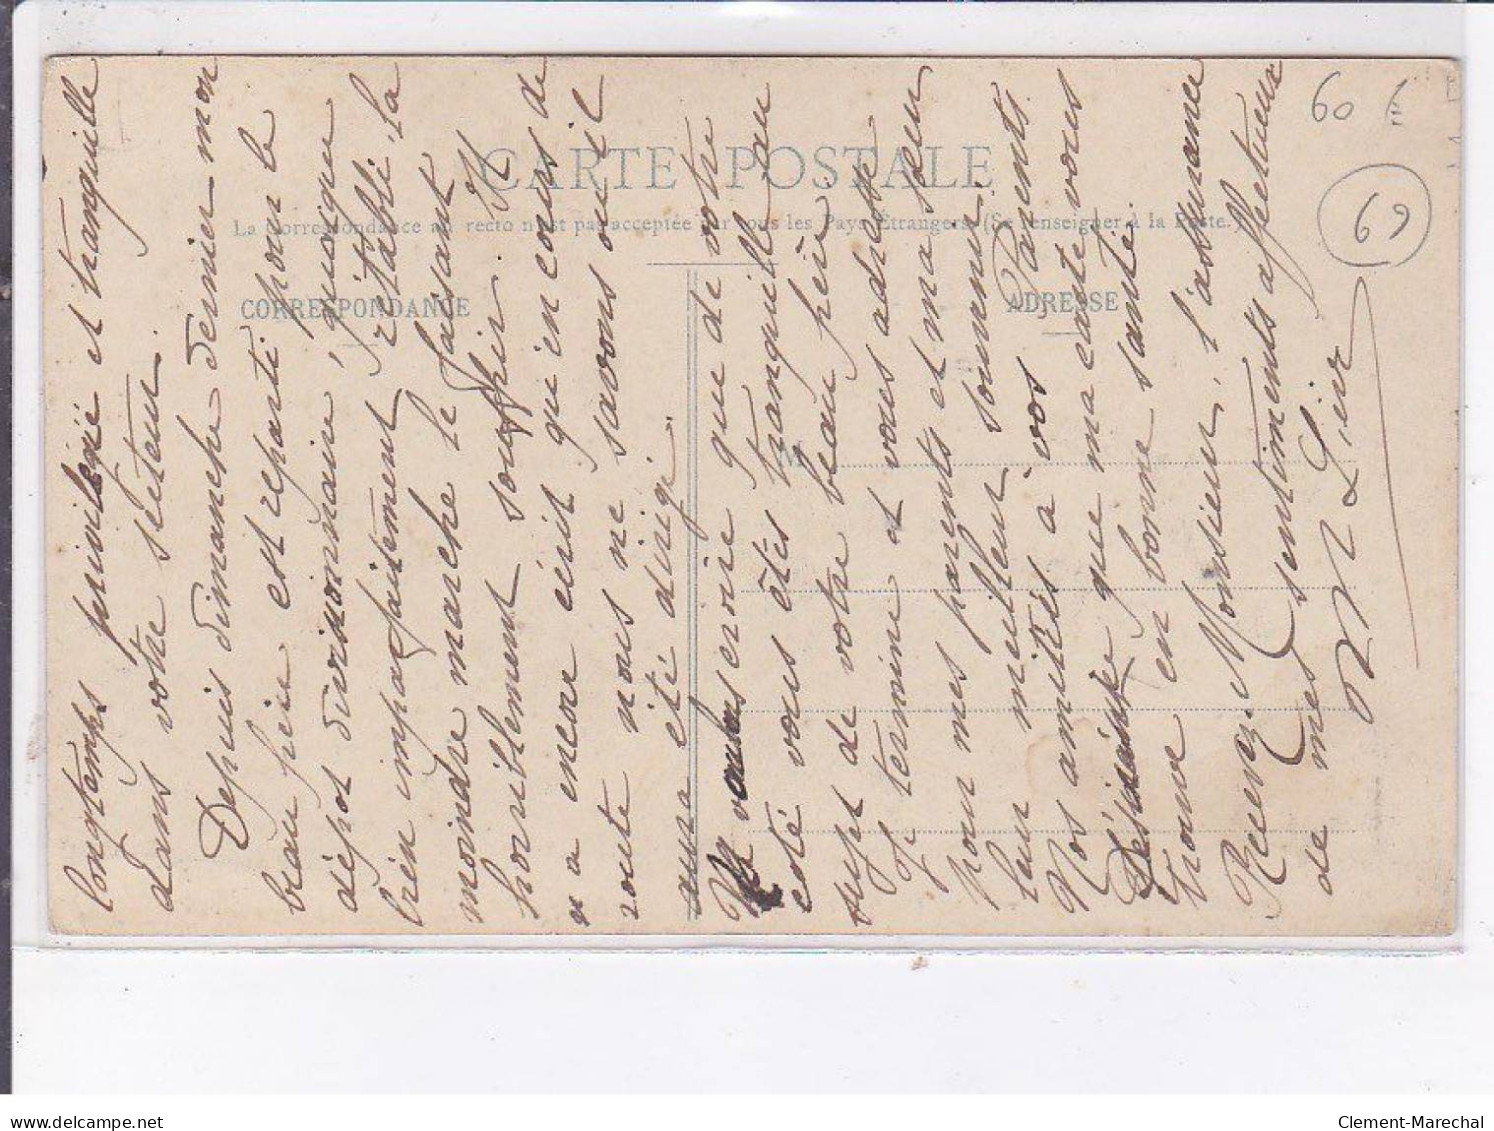 CARTE POSTALE
La Correspondance au recto n'est pas acceptée par tous les Pays Étrangers. (Se renseigner à la Poste.)
CORRESPONDANCE
ADRESSE
M
60 €
69
longtemps privilégié et tranquille
dans votre secteur.
Depuis dimanche dernier mon
beau frère est reparti pour le
dépot divisionnaire, quoique
bien imparfaitement rétabli, la
moindre marche le faisant
horriblement souffrir. Il
n'a encore écrit qu'en cours de
route nous ne savons où il
aura été dirigé.
Je voulais croire que de votre
coté vous êtes tranquille au
sujet de votre beau père
Je termine et vous adresse
pour mes parents et ma sœur
leur meilleur souvenir.
Nos amitiés à vos Parents
Désirant que ma carte vous
trouve en bonne santé.
Recevez, Monsieur, l'assurance
de mes sentiments affectueux
delcampe.net
Clement-Marechal